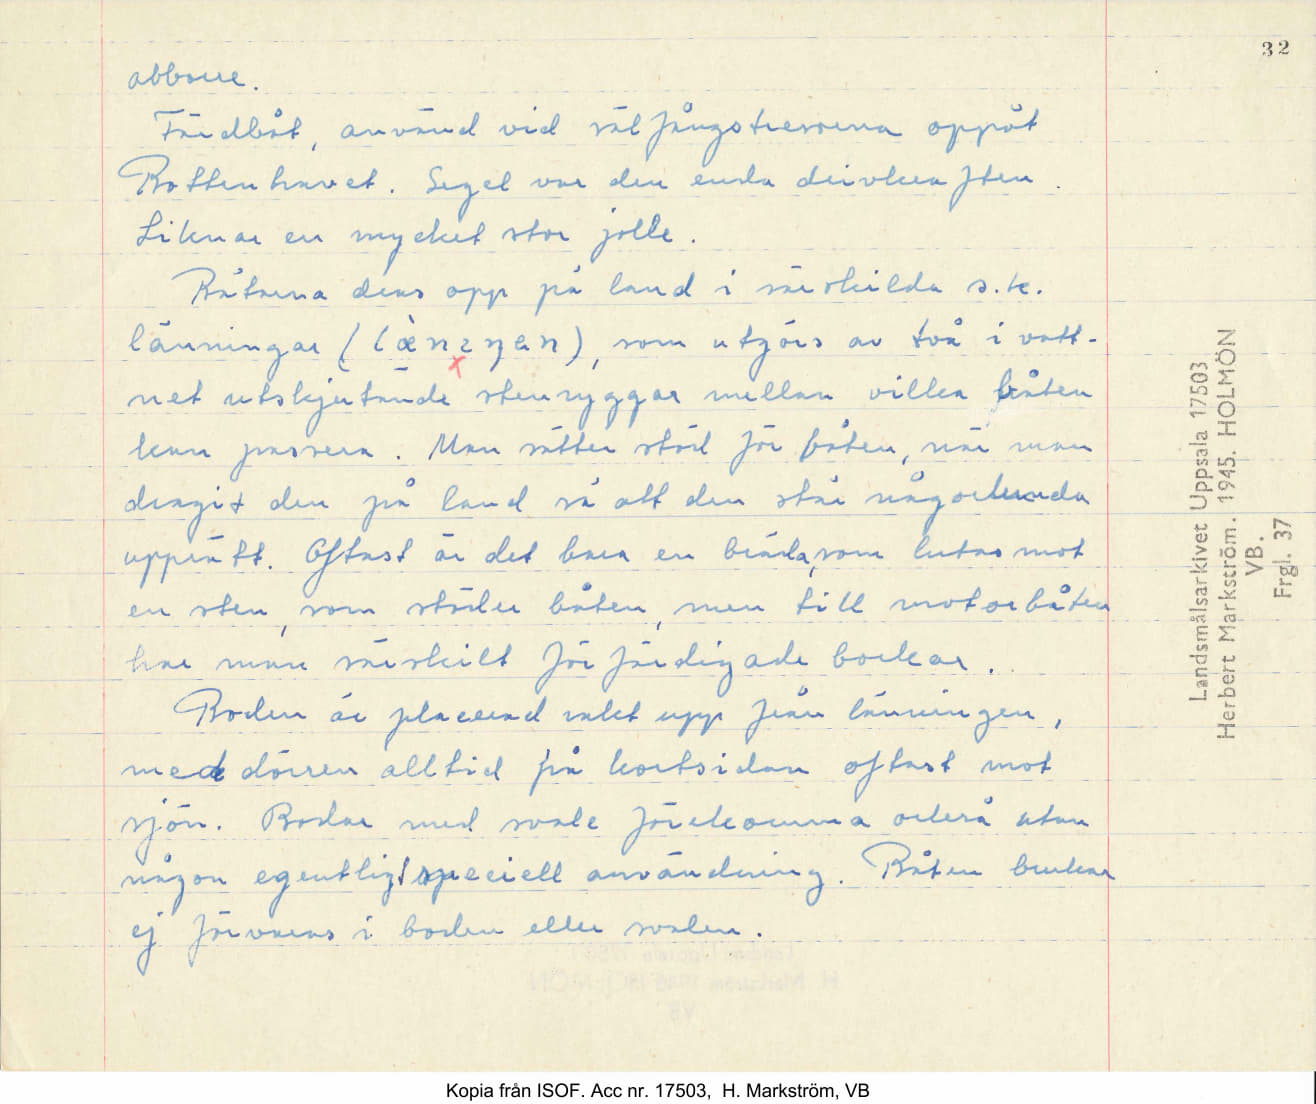 32
abborre.
Färdbåt, använd vid sälfångstresorna oppåt
Bottenhavet. Segel var den enda drivkraften.
Liknar en mycket stor jolle.
Båtarna dras opp på land i särskilda s.k.
länningar (lὰnɪŋan), som utgörs av två i vatt-
net utskjutande stenryggar mellan vilka båten
kan passera. Man sätter stöd för båten, när man
dragit den på land så att den står någorlunda
upprätt. Oftast är det bara en bräda, som lutas mot
en sten, som stöder båten, men till motorbåten
har man särskilt förfärdigade bockar.
Boden är placerad rakt upp från länningen,
med dörren alltid på kortsidan oftast mot
sjön. Bodar med svale förekomma också utan
någon egentlig speciell användning. Båten brukar
ej förvaras i boden eller svalen.
Landsmålsarkivet Uppsala 17503
Herbert Markström. 1945. HOLMÖN
VB.
Frgl. 37
Kopia från ISOF. Acc nr. 17503, H. Markström, VB